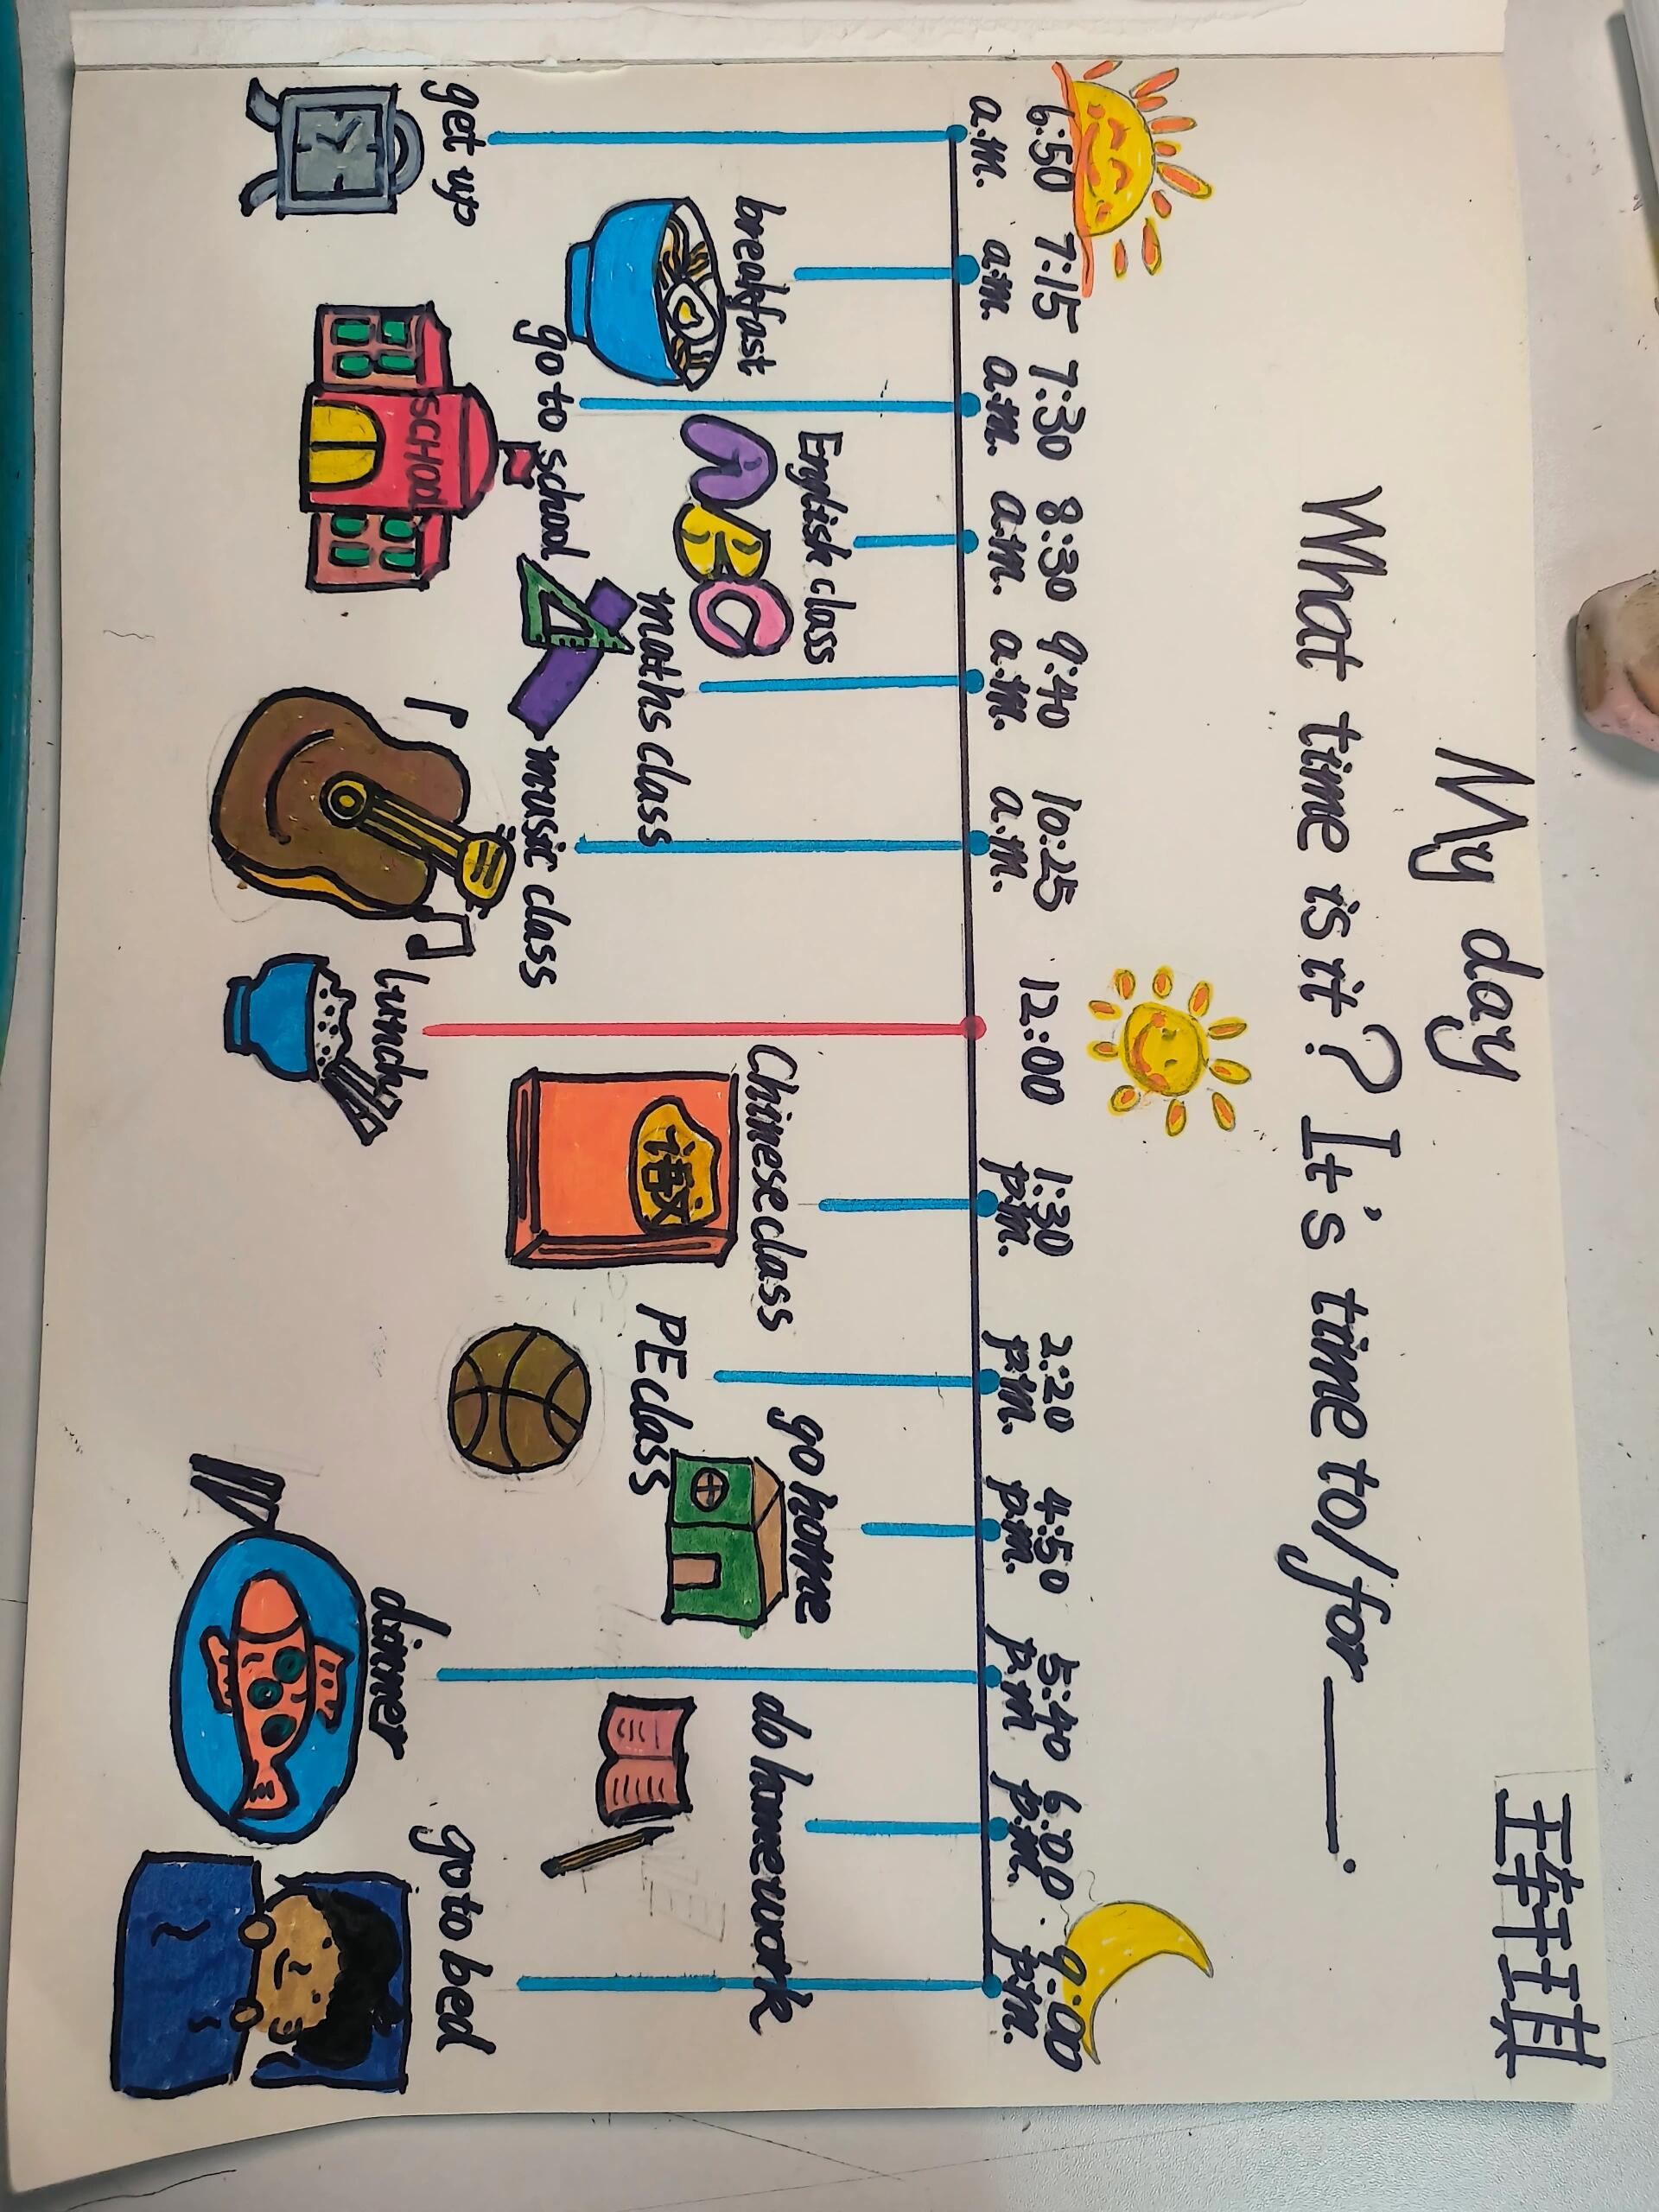 王轩琪
My day
What time is it? It's time to/for ______.
6:50 7:15 7:30 8:30 9:40 10:25 12:00 1:30 2:20 4:50 5:40 6:00 9:00
a.m. a.m. a.m. a.m. a.m. a.m. p.m. p.m. p.m. p.m p.m. p.m.
get up
breakfast
go to school
SCHOOL
English class
ABC
maths class
music class
lunch
Chinese class
语文
PE class
go home
dinner
do homework
go to bed